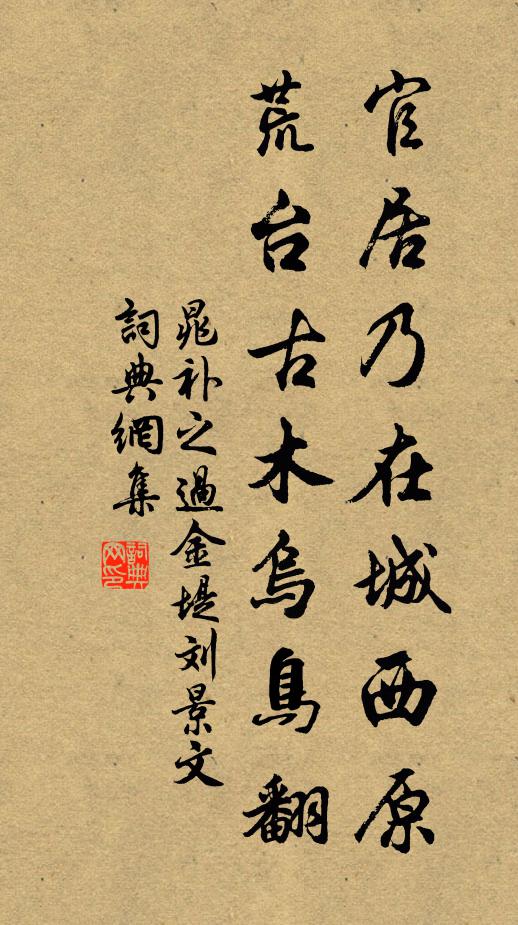 官居乃在城西原
荒台古木乌鳥翻
晁补之過金堤刘景文
詞典網集
詞典
網印